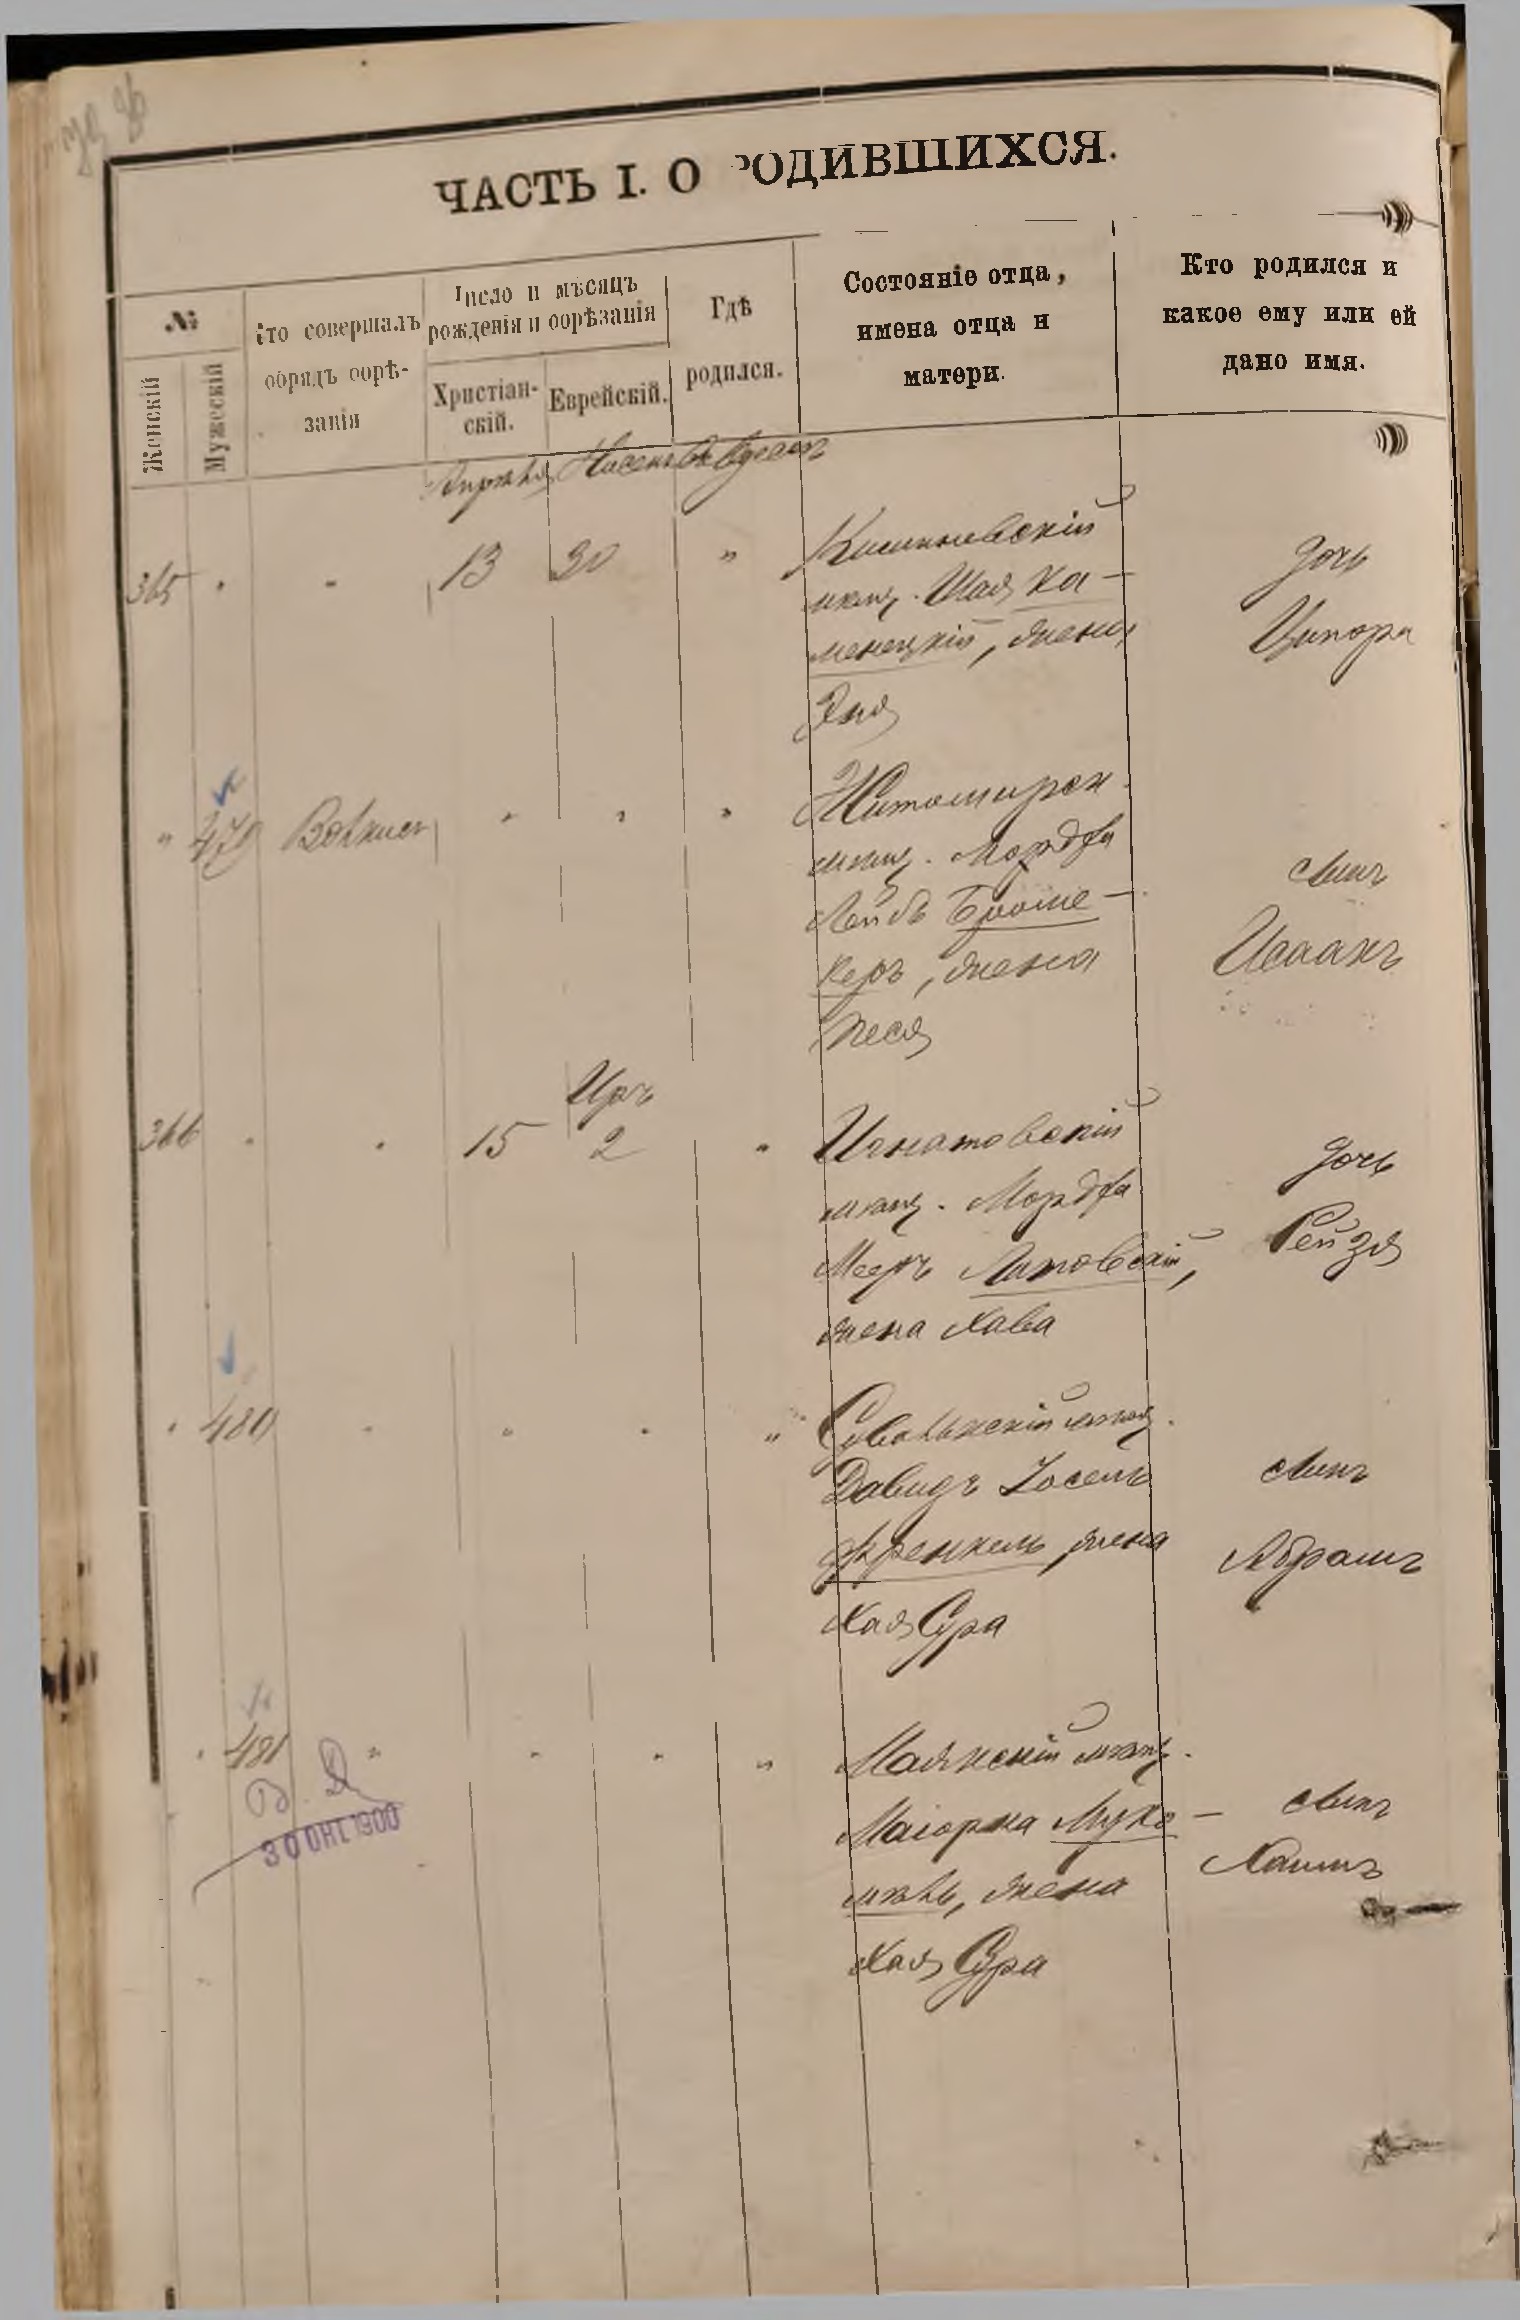 ЧАСТЬ I. О РОДИВШИХСЯ.
№
Женскій
Мужескій
Кто совершалъ
обрядъ обрѣ-
занія
Число и мѣсяцъ
рожденія и обрѣзанія
Христіан-
скій.
Еврейскій.
Гдѣ
родился.
Состояніе отца,
имена отца и
матери.
Кто родился и
какое ему или ей
дано имя.
Апрѣля Нисенъ Въ Одессѣ
365 " " 13 30 "
Кишиневскій
мѣщ. Шая Ка-
менецкій, жена
Эня
дочь
Ципора
" 479 " " "
Житомирск.
мѣщ. Мордха
Лейбъ
керъ, жена
Песя
сынъ
Исаакъ
366 " " 15 Иръ 2 "
Игнатовскій
мѣщ. Мордха
Мееръ Латовскій,
жена Хава
дочь
Рейзя
" 480 " " " "
Сувалкскій мѣщ.
Давидъ Іосель
Френкель, жена
Хая Сура
сынъ
Абрамъ
" 481 " " " "
Маякскій мѣщ.
Маіорка Муко-
мель, жена
Хая Сура
сынъ
Хаимъ
В. Д.
30 ОКТ. 1900